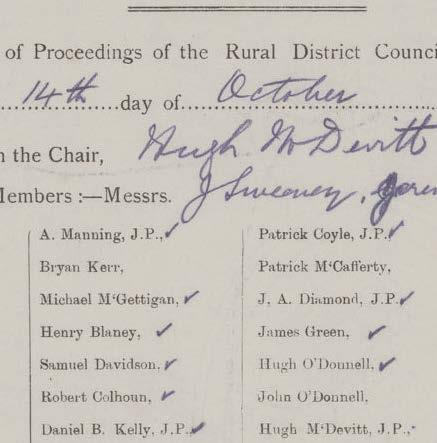 of Proceedings of the Rural District Counci
14th day of October
n the Chair, Hugh McDevitt
Members :—Messrs. J Sweeney,
A. Manning, J.P.,
Bryan Kerr,
Michael M'Gettigan,
Henry Blaney,
Samuel Davidson,
Robert Colhoun,
Daniel B. Kelly, J.P.,
Patrick Coyle, J.P.,
Patrick M'Cafferty,
J. A. Diamond, J.P.,
James Green,
Hugh O'Donnell,
John O'Donnell,
Hugh M'Devitt, J.P.,